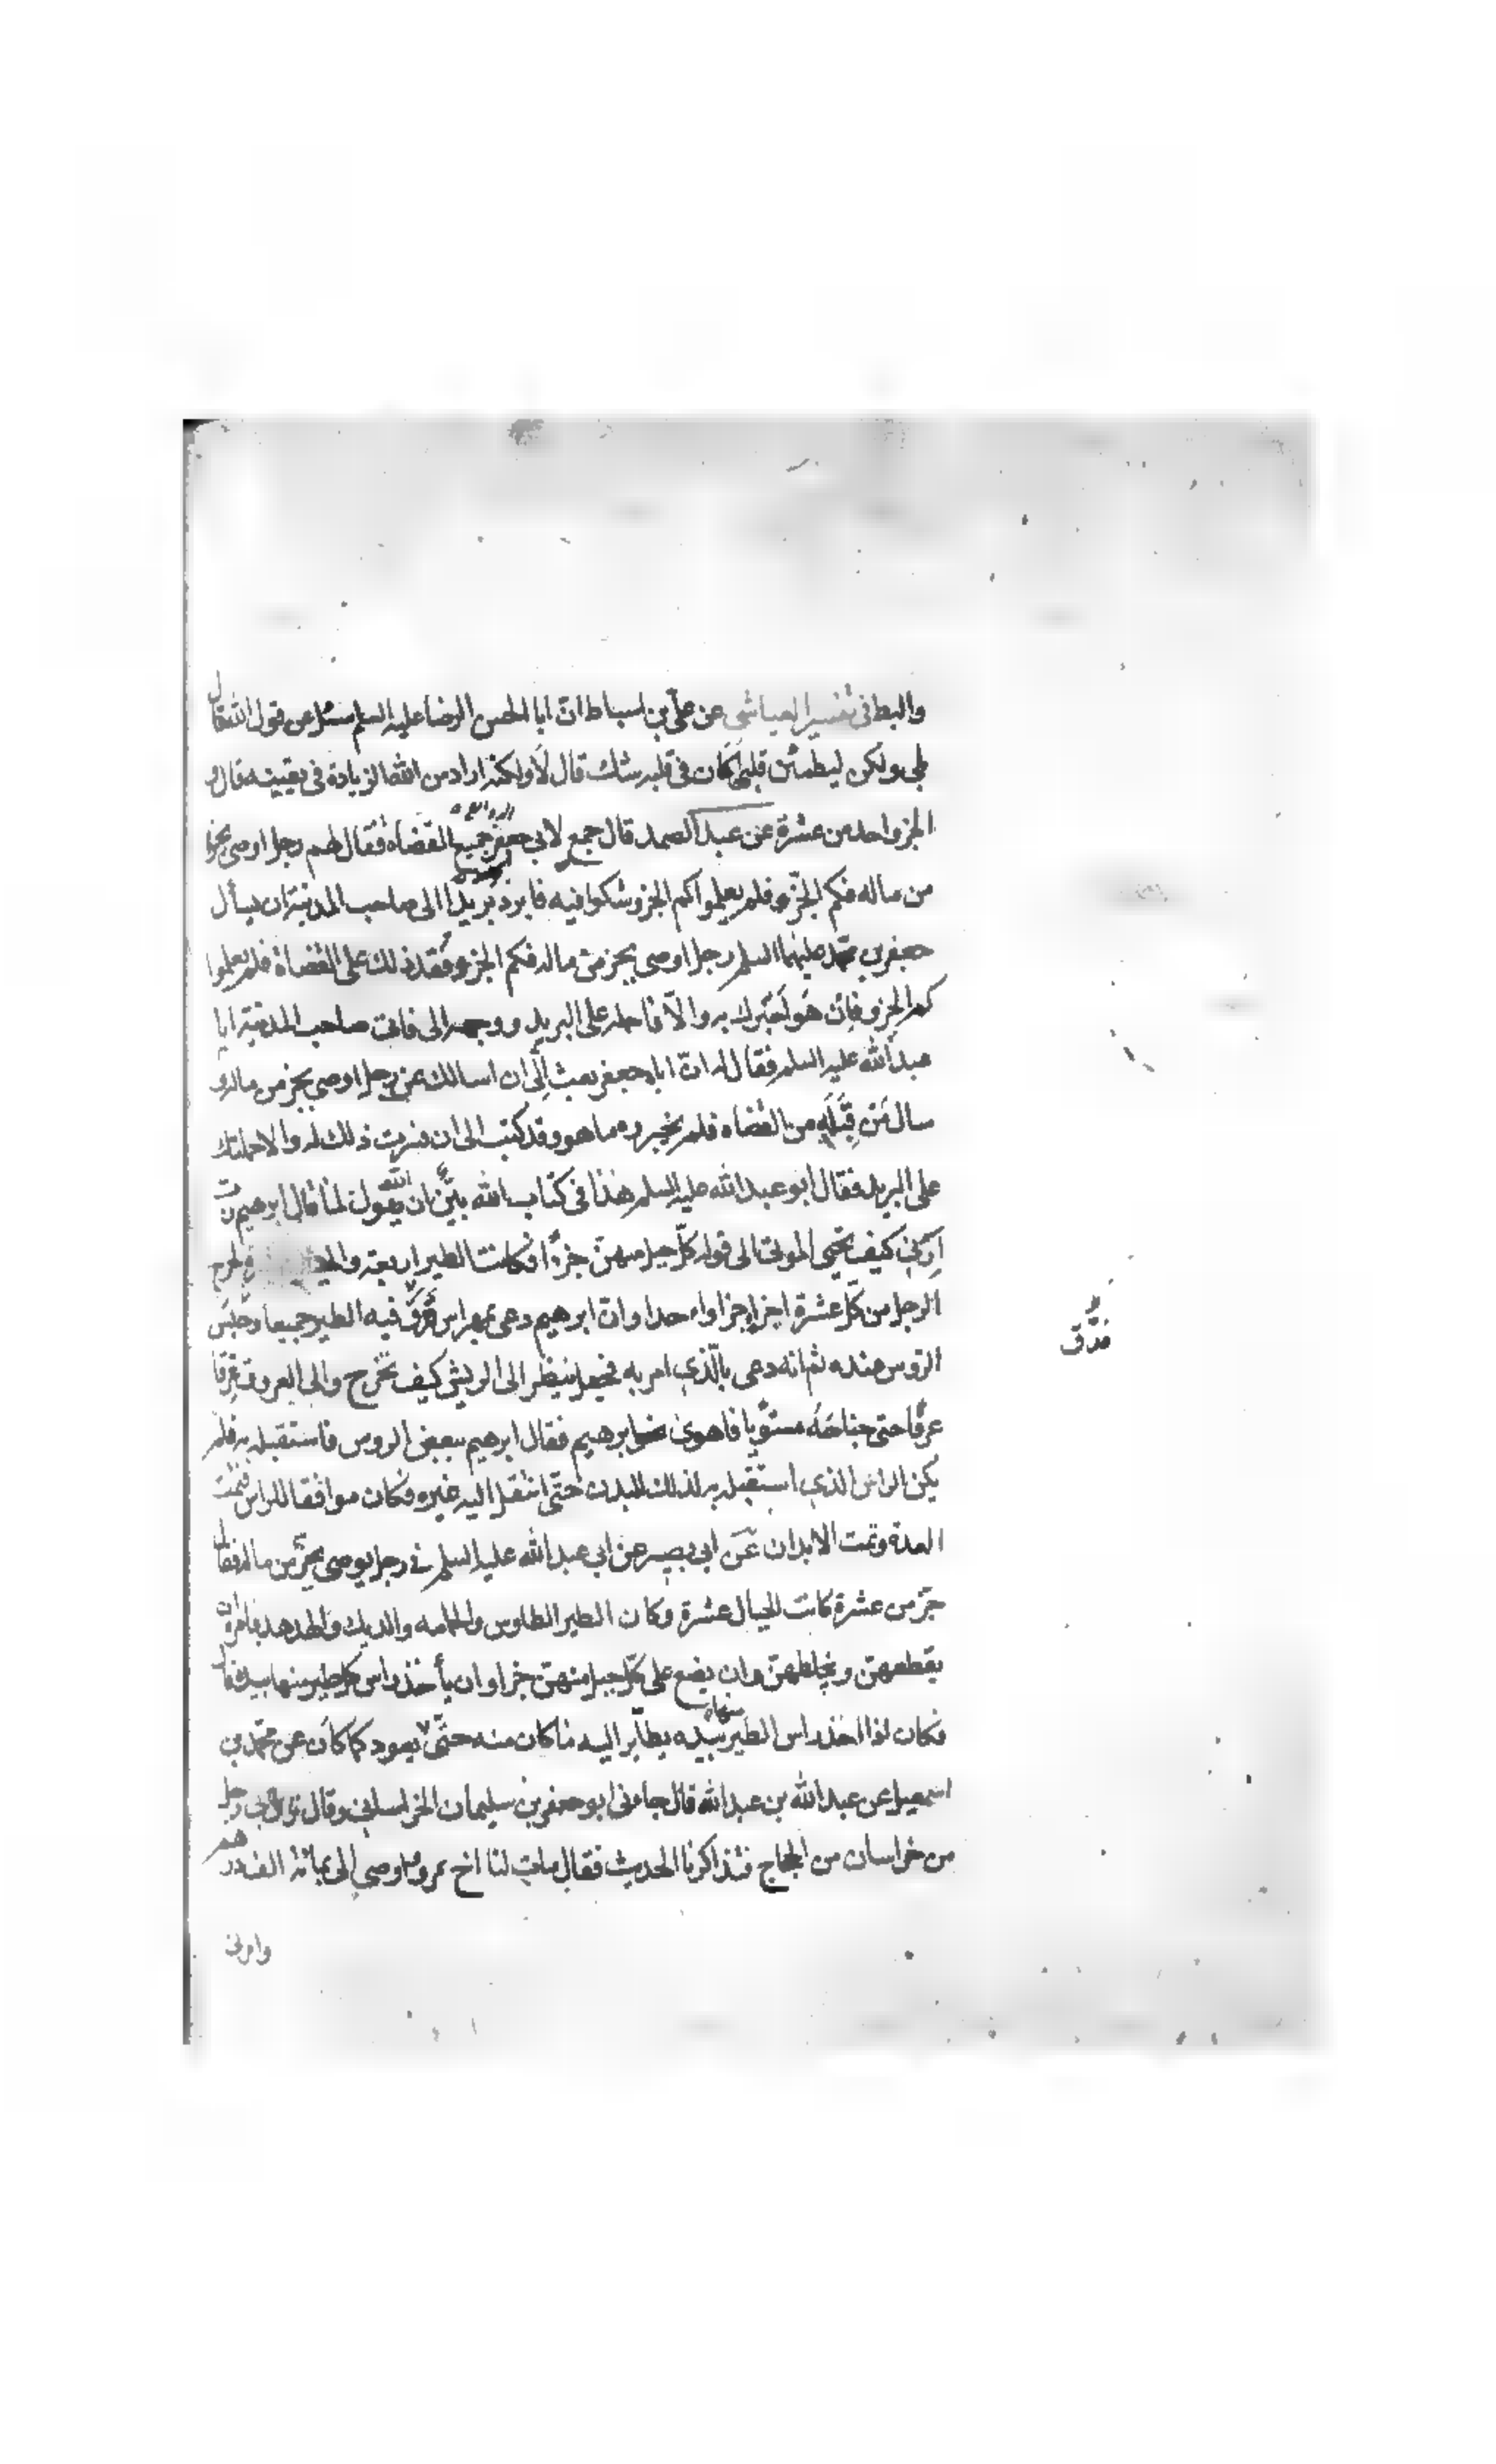 والبط فى تفسير العياشى عن على بن اسباط ان ابا الحسن الرضا عليه السلم سئل عن قول الله قال
بلى ولكن ليطمئن قلبى اكان فى قلبه شك قال لا ولكنه اراد من الله الزيادة فى يقينه قال و
الجزو احد من عشرة عن عبد الصمد قال جمع لابى جعفر جميع القضاة فقال لهم رجل اوصى بجزو
من ماله فكم الجزو فلم يعلموا كم الجزو شكوا فيه فابرد بريدا الى صاحب المدينة ان يسأل
جعفر بن محمد عليهما السلم رجل اوصى بجزء من ماله فكم الجزو فقد ذلك على القضاة فلم يعلموا
كم الجزو فان هو اخبرك به والا فاحمله على البريد ووجهه الى فاتى صاحب المدينة ابا
عبد الله عليه السلم فقال له ان ابا جعفر بعث الى ان اسالك عن رجل اوصى بجزء من ماله و
سال من قبله من القضاه فلم يخبروه ما هو وقد كتب الى ان فسرت ذلك له والا حملتك
على البريد فقال ابو عبد الله عليه السلم هذا فى كتاب الله بين ان الله يقول لما قال ابرهيم رب
ارنى كيف تحيى الموتى الى قوله كل جبل منهن جزءا فكانت الطير اربعة و
الرجل من كل عشرة اجزاء جزا واحدا وان ابرهيم دعى بمهراس فدق فيه الطير جميعا وحبس
الروس عنده ثم انه دعى بالذى امر به فجعل ينظر الى الريش كيف تخرج والى العروق عرقا
عرقا حتى جناحه مستويا فاهوى نحو ابرهيم فقال ابرهيم ببعض الروس فاستقبله به فلم
يكن الراس الذى استقبله به لذلك البدن حتى انتقل اليه غيره فكان موافقا للراس فتمت
العدة وتمت الابدان عن ابى بصير عن ابى عبد الله عليه السلم فى رجل يوصى بجزء من ماله فقال
جزء من عشرة كانت الجبال عشرة وكان الطير الطاوس والحمامه والديك والهدهد فامره ان
يقطعهن ويخلطهن وان يضع على كل جبل منهن جزا وان يأخذ راس كل طير منها بيده قال
فكان اذا اخذ راس الطير منها بيده يطاير اليه ما كان منه حتى يعود كما كان عن محمد بن
اسمعيل عن عبد الله بن عبد الله قال جاءنى ابو جعفر بن سليمان الخراسانى وقال نزل بى رجل
من خراسان من الحجاج فتذاكرنا الحديث فقال مات لنا اخ بمرو واوصى الى بمائة الف درهم
وامرنى
فدق